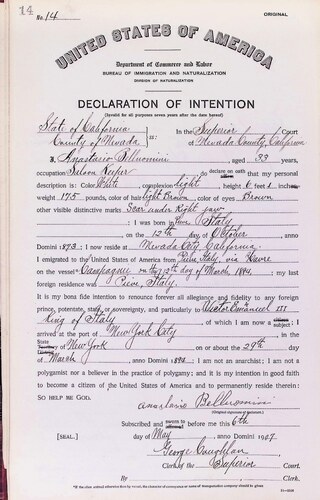 14
No. 14
ORIGINAL.
UNITED STATES OF AMERICA
Department of Commerce and Labor
BUREAU OF IMMIGRATION AND NATURALIZATION
DIVISION OF NATURALIZATION
DECLARATION OF INTENTION
(Invalid for all purposes seven years after the date hereof)
State of California
County of Nevada
ss:
In the Superior Court
of Nevada County, California
I, Anastario Belluomini, aged 33 years,
occupation Saloon Keeper, do declare on oath that my personal
description is: Color White, complexion light, height 6 feet 1 inches,
weight 175 pounds, color of hair light Brown, color of eyes Brown
other visible distinctive marks Scar under Right jaw
I was born in Italy
, on the 12th day of October, anno
Domini 1873; I now reside at Nevada City, California.
I emigrated to the United States of America from Italy, via Havre
on the vessel ; my last
foreign residence was Italy.
It is my bona fide intention to renounce forever all allegiance and fidelity to any foreign
prince, potentate, state, or sovereignty, and particularly to Victor Emanuel III
King of Italy, of which I am now a subject; I
arrived at the port of New York City, in the
State of New York on or about the 29th day
of March, anno Domini 1894; I am not an anarchist; I am not a
polygamist nor a believer in the practice of polygamy; and it is my intention in good faith
to become a citizen of the United States of America and to permanently reside therein:
SO HELP ME GOD.
Belluomini
(Original signature of declarant.)
Subscribed and sworn to before me this 6th
[SEAL.] day of May, anno Domini 1907.
George Coughlan
Clerk of the Superior Court.
By , Clerk.